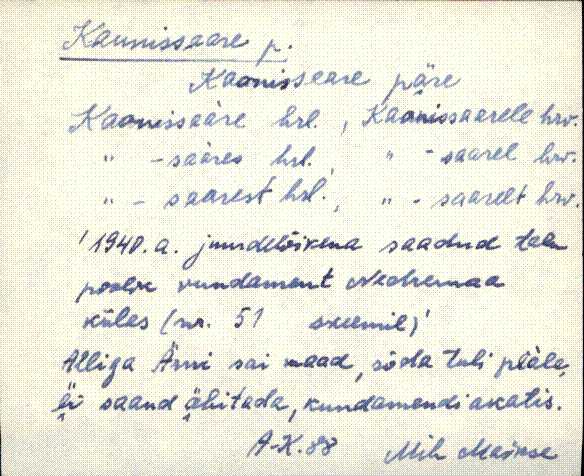 Kaunissaare p.
Kaonissaare päre
Kaonissaare hrl., Kaonissaarele hrv.
" -saares hrl. " -saarel hrv.
" -saarest hrl., " -saarelt hrv.
'1940.a. juurdelõikena saadud talu
poolik vundament Nedremaa
külas (nr. 51 skeemil)'
Alliga Ärni sai maad, sõda tuli pääle,
äi saand ähitada, kundamendi akatis.
A-K. 88 Mih